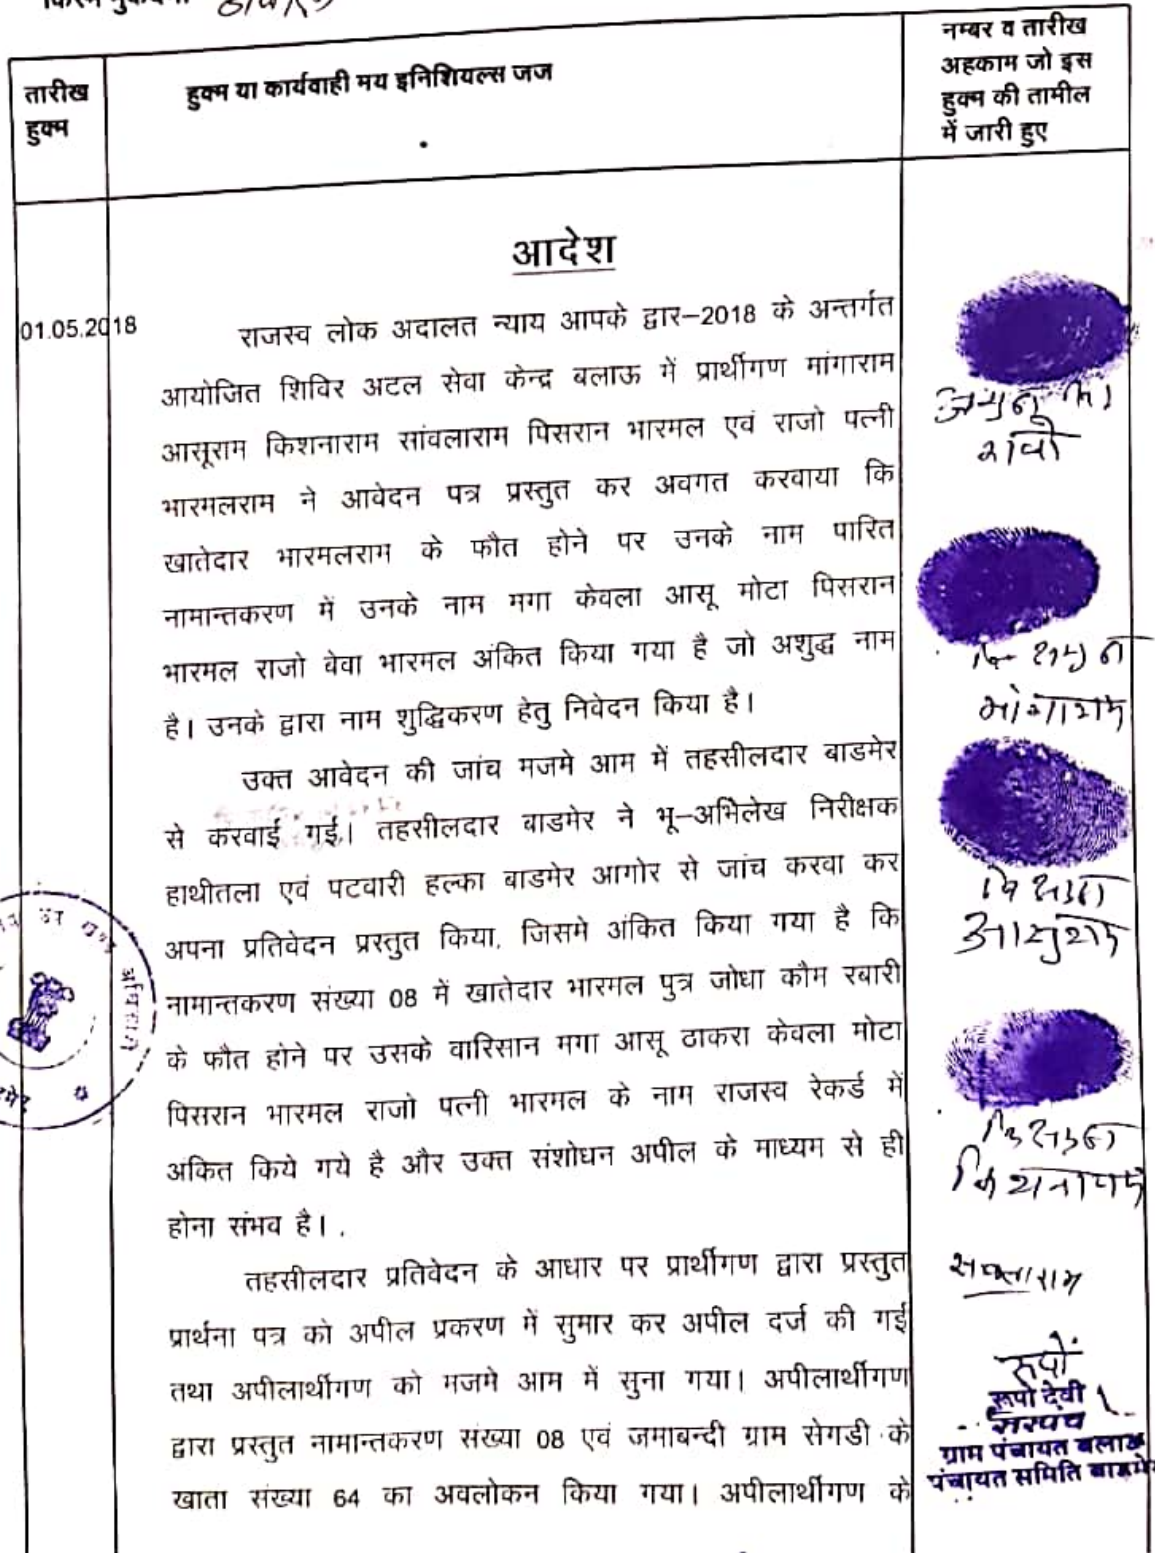 तारीख
हुक्म
हुक्म या कार्यवाही मय इनिशियल्स जज
नम्बर व तारीख
अहकाम जो इस
हुक्म की तामील
में जारी हुए
आदेश
01.05.2018
राजस्व लोक अदालत न्याय आपके द्वार–2018 के अन्तर्गत
आयोजित शिविर अटल सेवा केन्द्र बलाऊ में प्रार्थीगण मांगाराम
आसूराम किशनाराम सांवलाराम पिसरान भारमल एवं राजो पत्नी
भारमलराम ने आवेदन पत्र प्रस्तुत कर अवगत करवाया कि
खातेदार भारमलराम के फौत होने पर उनके नाम पारित
नामान्तकरण में उनके नाम मगा केवला आसू मोटा पिसरान
भारमल राजो बेवा भारमल अंकित किया गया है जो अशुद्ध नाम
है। उनके द्वारा नाम शुद्धिकरण हेतु निवेदन किया है।
उक्त आवेदन की जांच मजमे आम में तहसीलदार बाडमेर
से करवाई गई। तहसीलदार बाडमेर ने भू–अभिलेख निरीक्षक
हाथीतला एवं पटवारी हल्का बाडमेर आगोर से जांच करवा कर
अपना प्रतिवेदन प्रस्तुत किया, जिसमे अंकित किया गया है कि
नामान्तकरण संख्या 08 में खातेदार भारमल पुत्र जोधा कौम रबारी
के फौत होने पर उसके वारिसान मगा आसू ठाकरा केवला मोटा
पिसरान भारमल राजो पत्नी भारमल के नाम राजस्व रेकर्ड में
अंकित किये गये है और उक्त संशोधन अपील के माध्यम से ही
होना संभव है।
तहसीलदार प्रतिवेदन के आधार पर प्रार्थीगण द्वारा प्रस्तुत
प्रार्थना पत्र को अपील प्रकरण में सुमार कर अपील दर्ज की गई
तथा अपीलार्थीगण को मजमे आम में सुना गया। अपीलार्थीगण
द्वारा प्रस्तुत नामान्तकरण संख्या 08 एवं जमाबन्दी ग्राम सेगडी के
खाता संख्या 64 का अवलोकन किया गया। अपीलार्थीगण के
मांगाराम
आसुराम
रूपों
रूपो देवी
सरपंच
ग्राम पंचायत बलाऊ
पंचायत समिति बाडमेर